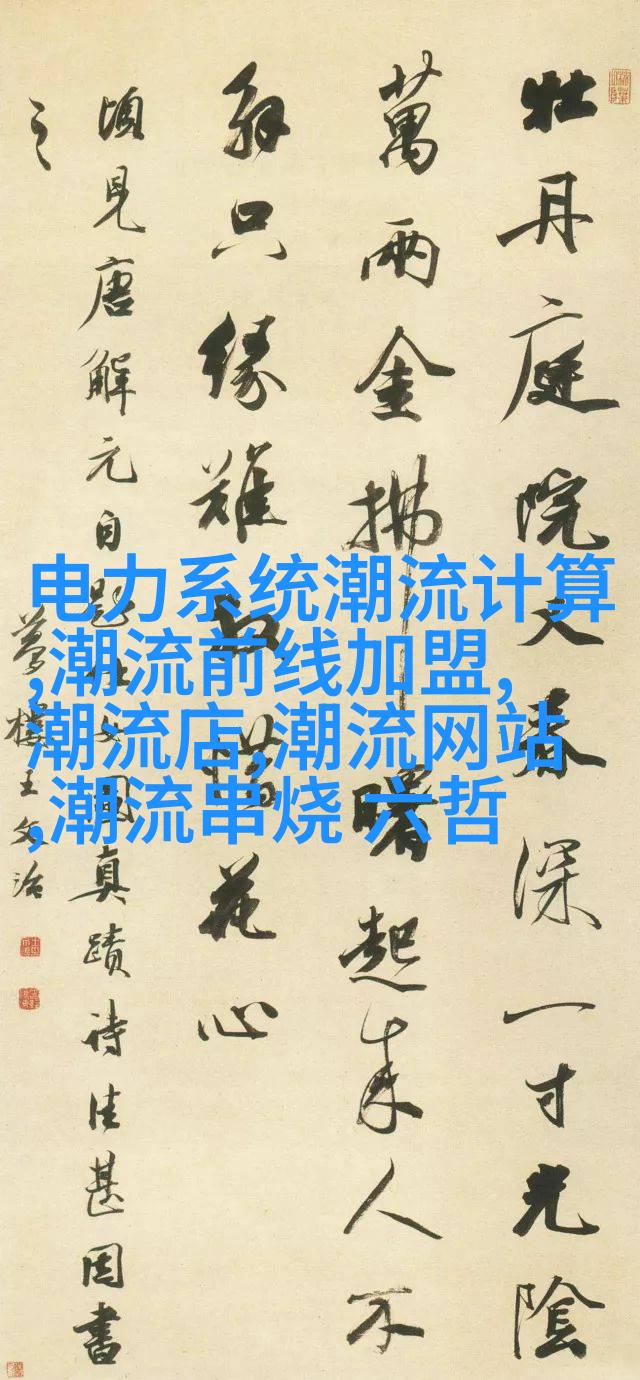 牡丹庭院又春深一寸光陰
萬兩金拂曙起來人不
解只緣難放惜花心
頃見唐解元自題仕女圖真蹟詩佳甚因書
之
夢樓王文治
电力系统潮流计算
,潮流前线加盟,
潮流店,潮流网站
,潮流串烧 六哲